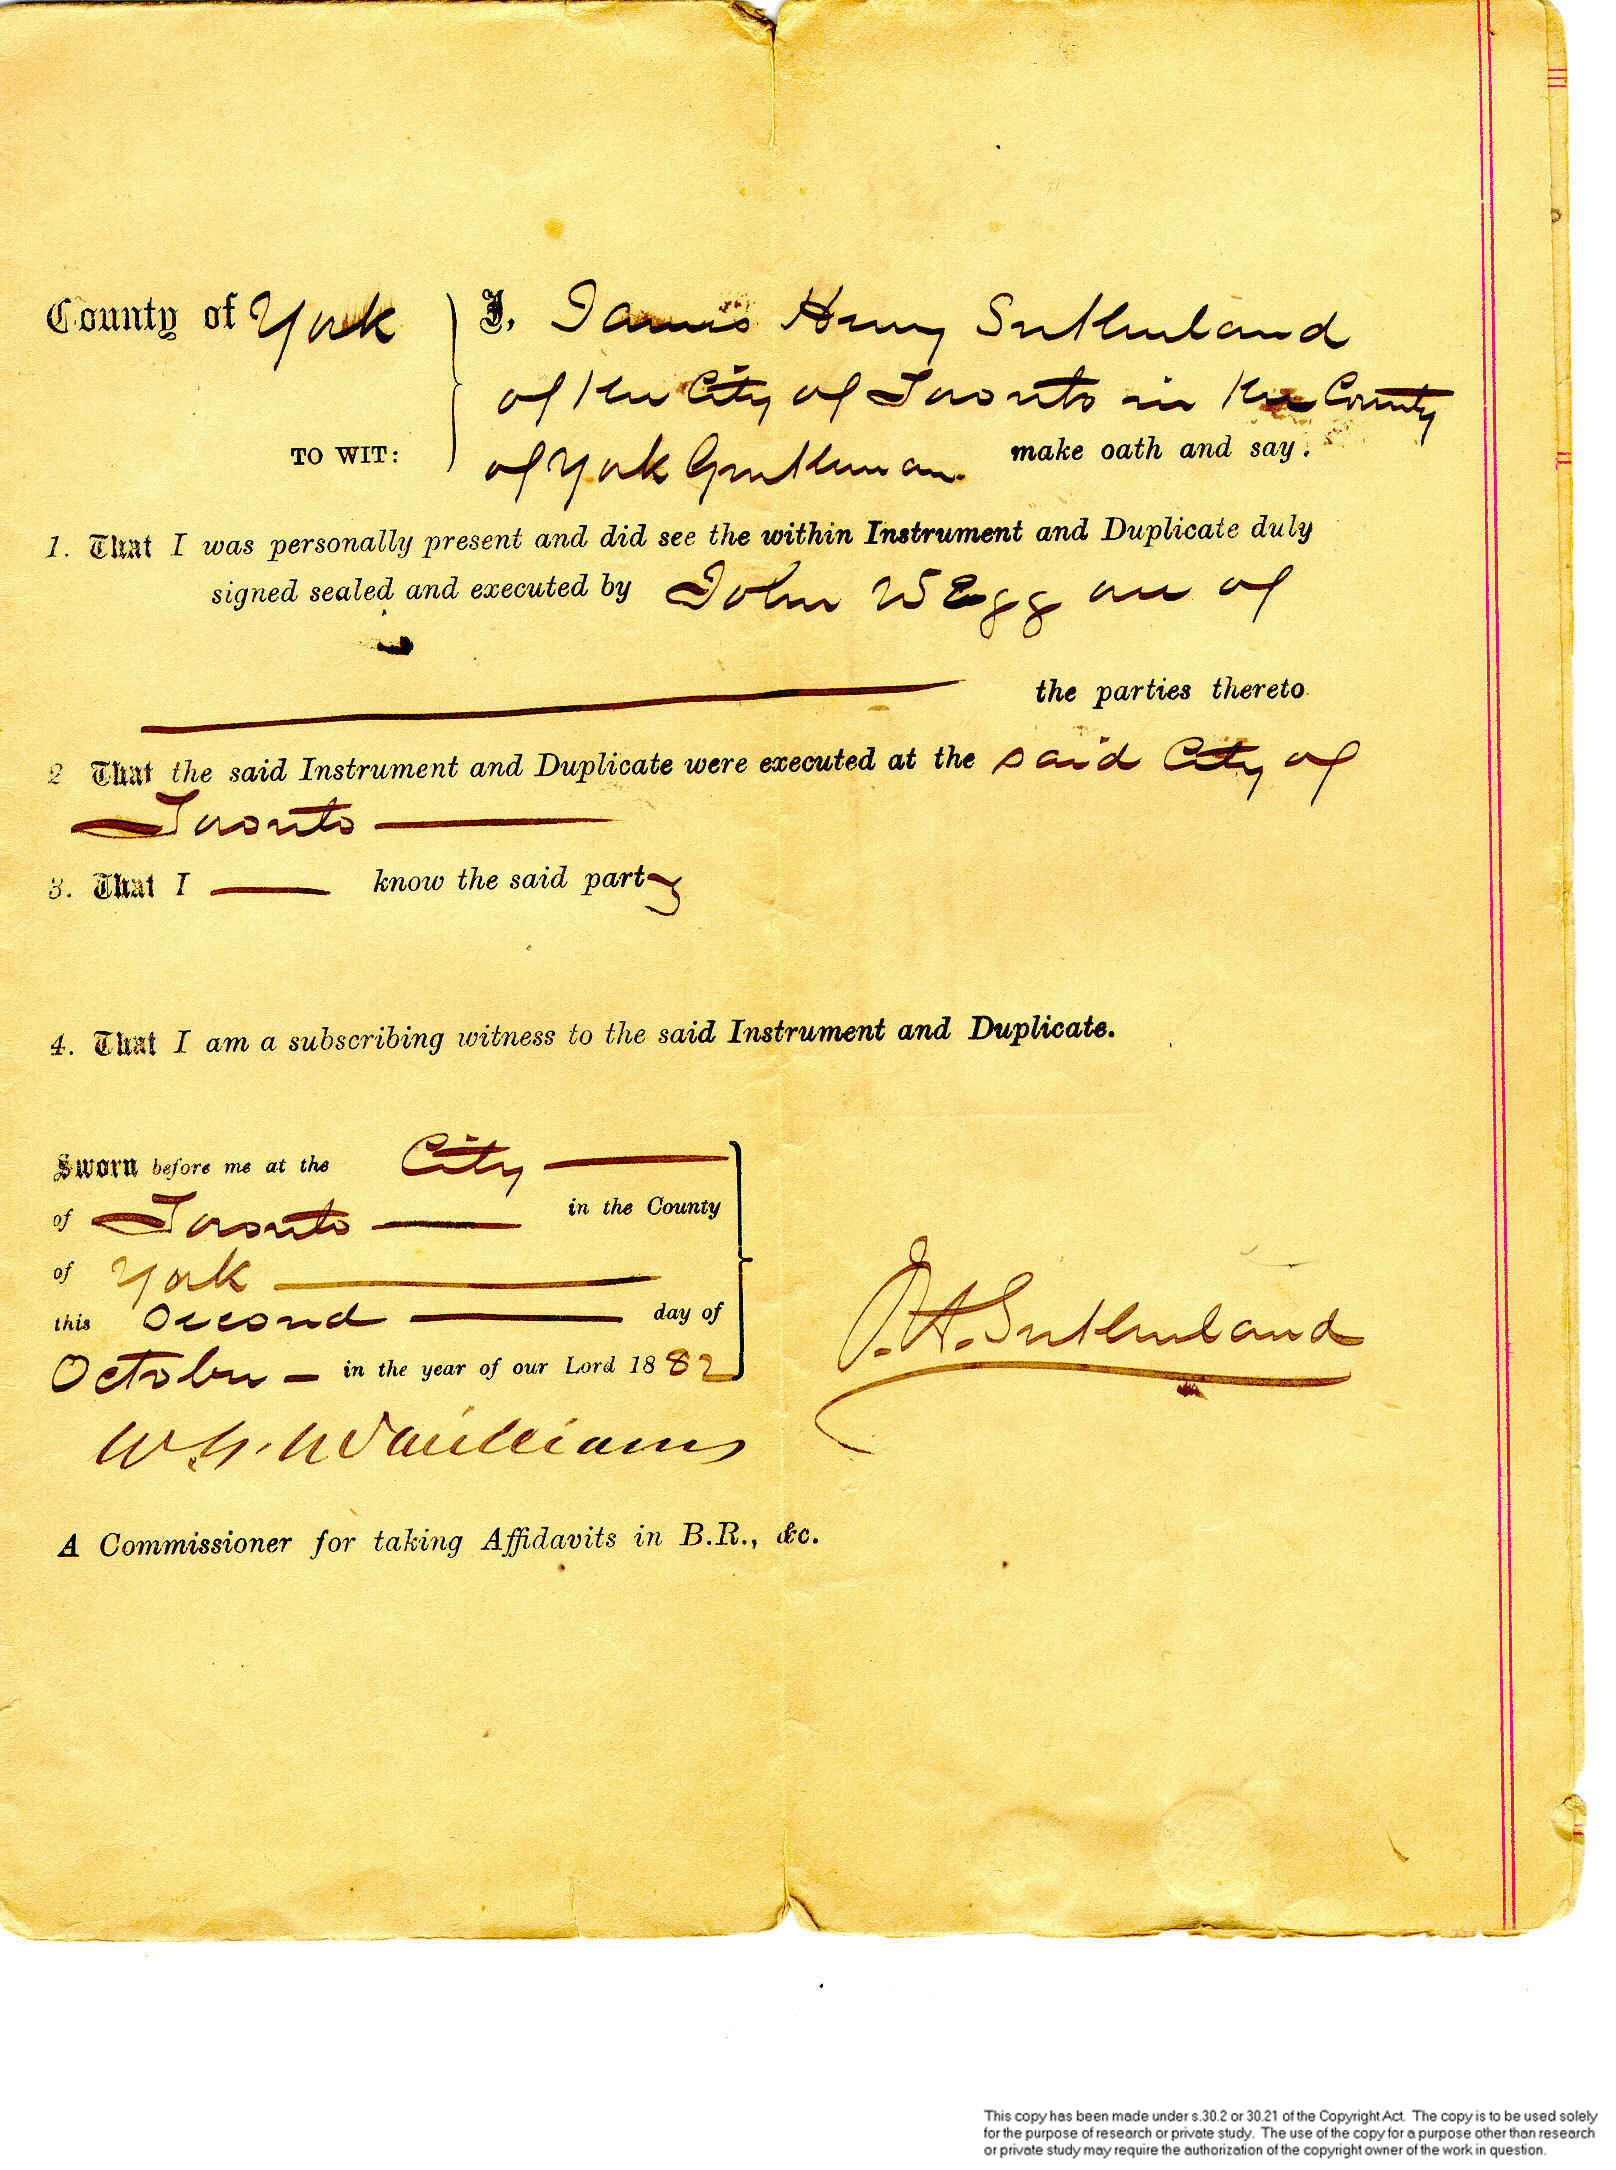 County of York
I, James Henry Sutherland
of the City of Toronto in the County
TO WIT:
of York Gentleman. make oath and say:
1. That I was personally present and did see the within Instrument and Duplicate duly
signed sealed and executed by John W Egg one of
the parties thereto
2 That the said Instrument and Duplicate were executed at the said City of
Toronto
3. That I know the said party
4. That I am a subscribing witness to the said Instrument and Duplicate.
Sworn before me at the City
of Toronto in the County
of York
this Second day of
October in the year of our Lord 1882
J. H. Sutherland
W. McWilliams
A Commissioner for taking Affidavits in B.R., &c.
This copy has been made under s.30.2 or 30.21 of the Copyright Act. The copy is to be used solely
for the purpose of research or private study. The use of the copy for a purpose other than research
or private study may require the authorization of the copyright owner of the work in question.